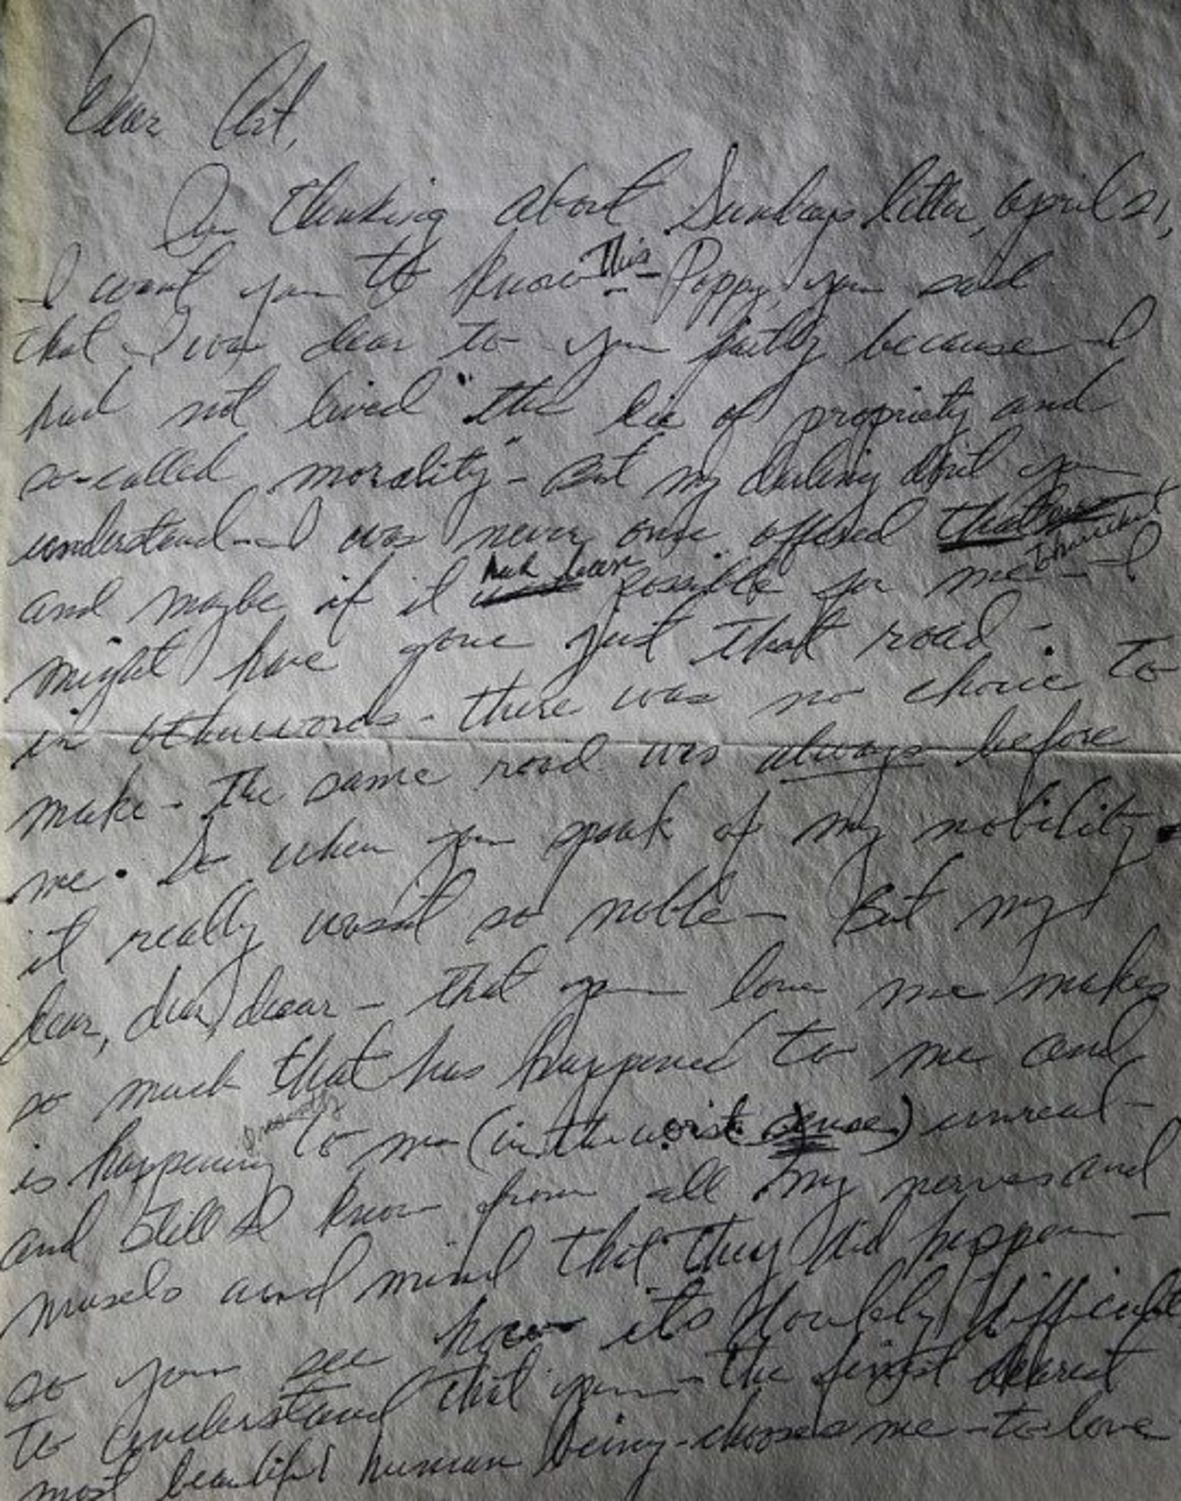 Dear Art,
In thinking about Sundays letter, April 21,
I want you to know This - Poppy, you said
that I was dear to you partly because I
had not lived "the lie of propriety and
so-called morality" - But my darling don't you
understand - I was never once offered that
and maybe if it had been possible for me - I
might have gone just that road -.
in otherwords - there was no choice to
make - The same road was always before
me. So when you speak of my nobility
it really wasn't so noble - But my
dear, dear, dear - that you love me makes
so much that has happened to me and
is happening to me (in the worst sense) unreal -
and still I know from all my nerves and
musels and mind that they did happen -
so you see how its doubly difficult
to understand that you - the finest dearest
most beautiful human being - chooses me - to love